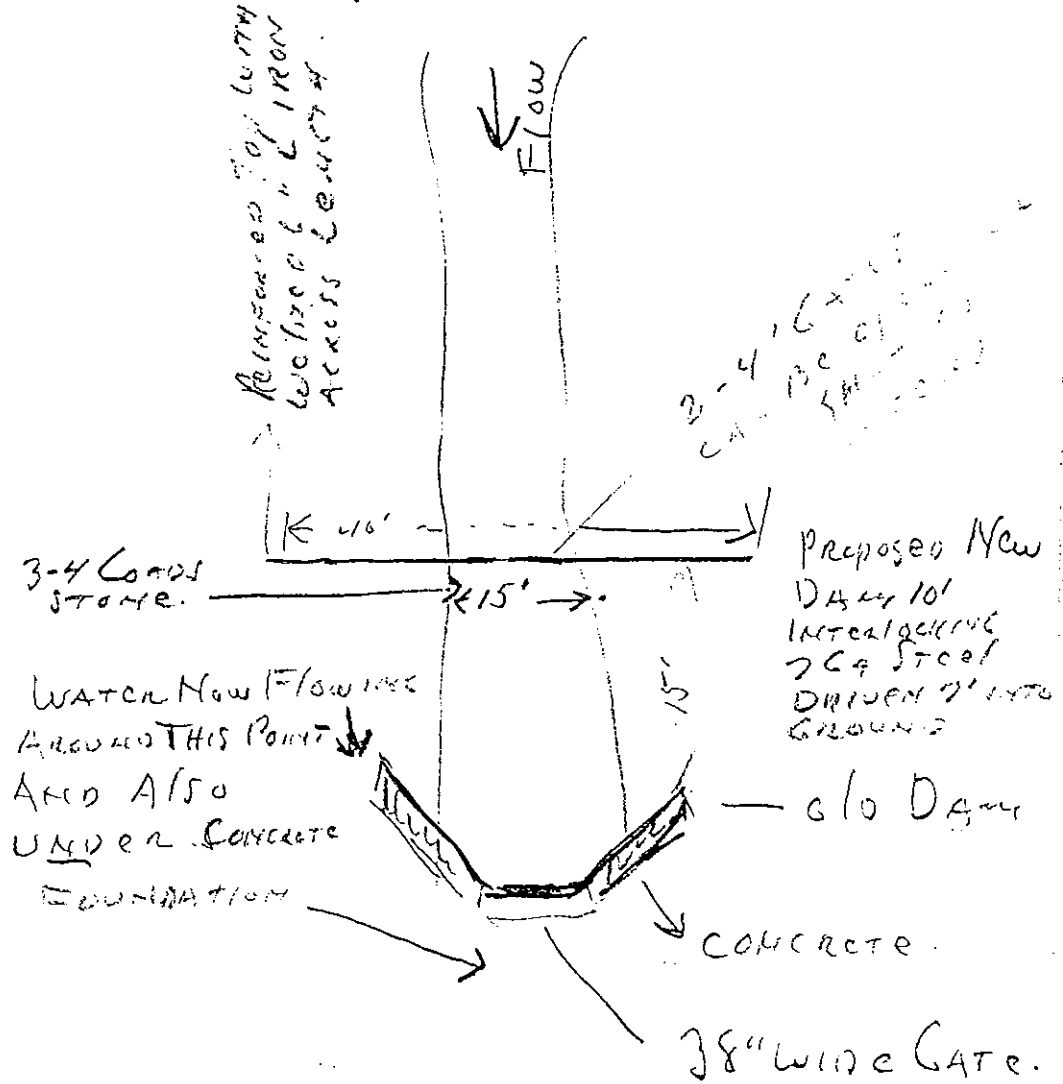 REINFORCED TOP WITH
WELDED L" L IRON
ACROSS LENGTH.
Flow
2-4' 6x
40'
3-4 LOADS
STONE.
15'
PROPOSED NEW
DAM 10'
INTERLOCKING
7GA STEEL
DRIVEN 7' INTO
GROUND
WATER NOW FLOWING
AROUND THIS POINT
AND ALSO
UNDER CONCRETE
FOUNDATION
15'
OLD DAM
CONCRETE.
38" WIDE GATE.